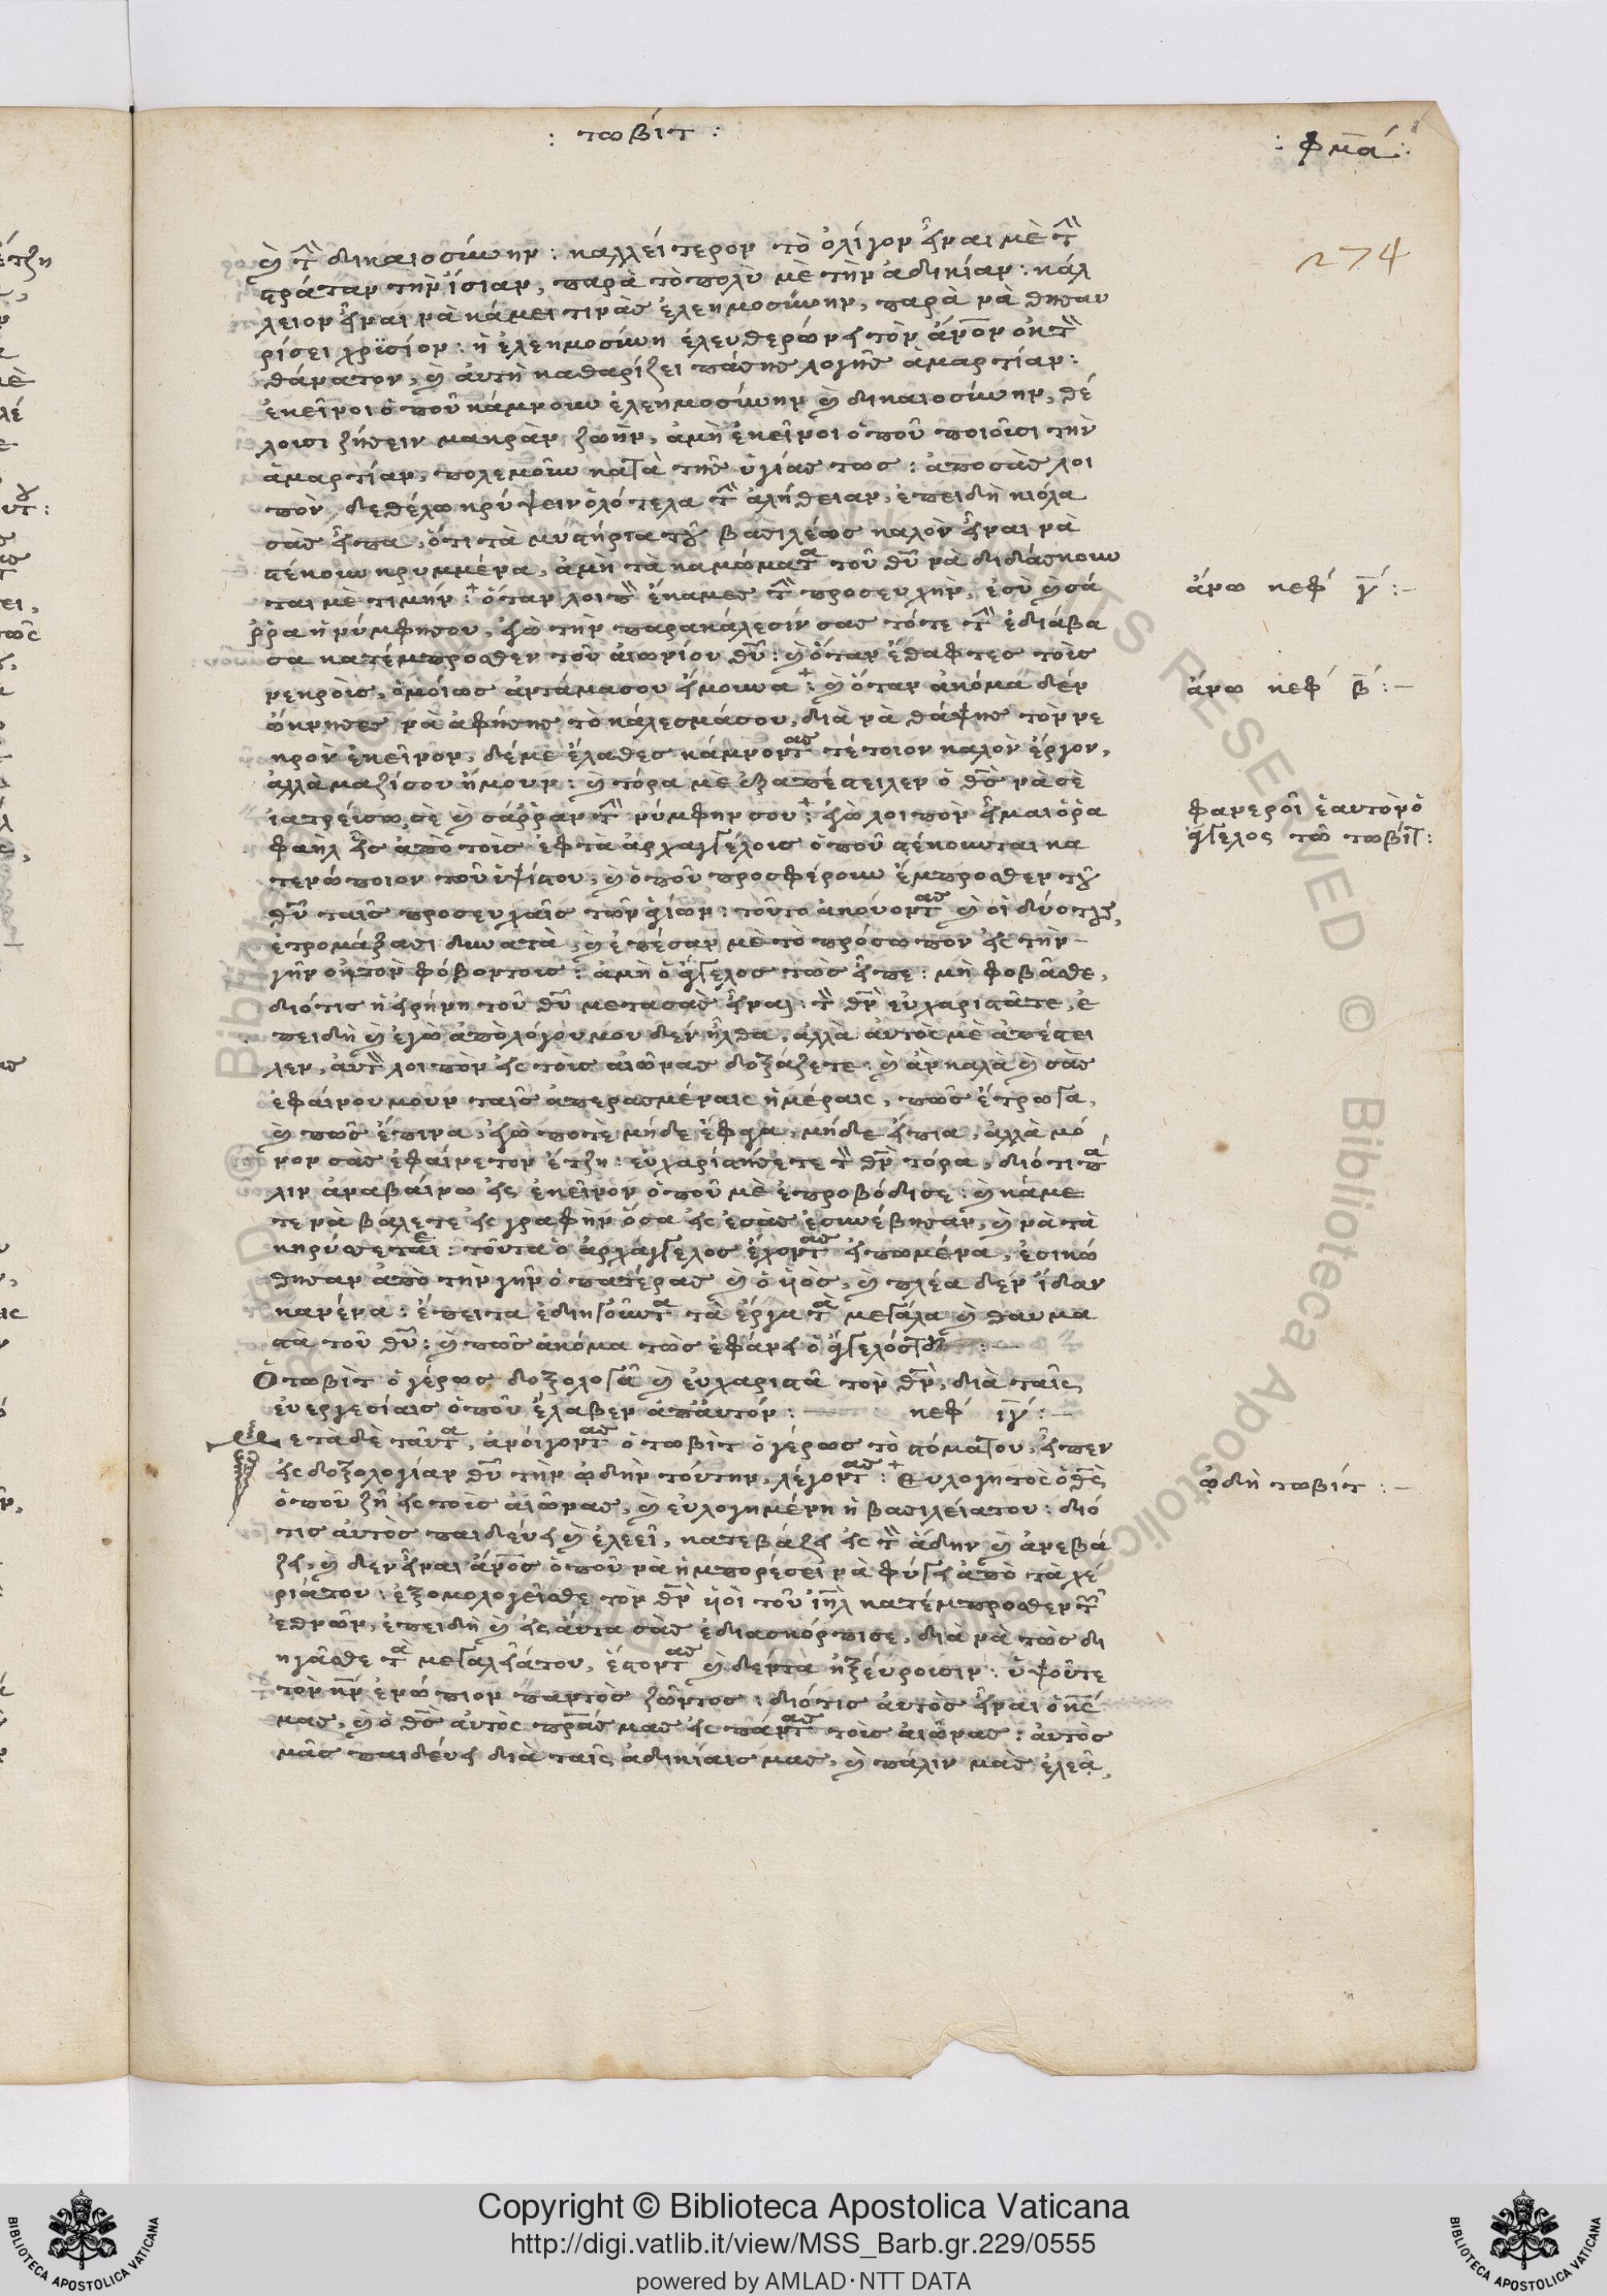 : τωβίτ :
: φμά :
274
ὲ τὴ δικαιοσύνην : καλλείτερον τὸ ὀλίγον εἶναι μὲ τὴ
στράταν τὴν ἴσιαν, παρὰ τὸ πολὺ μὲ τὴν ἀδικίαν : κάλ
λειον εἶναι νὰ κάμει τινὰς ἐλεημοσύνην, παρὰ νὰ θησαυ
ρίσει χρϊσίον : ἡ ἐλεημοσύνη ἐλευθερώνει τὸν ἄνον ἐκ τὸ
θάνατον, ὲ ἀυτὴ καθαρίζει πάσης λογῆς ἁμαρτίαν :
ἐκεῖνοι ὁποῦ κάμνουν ἐλεημοσύνην ὲ δικαιοσύνην, θέ
λουσι ζήσειν μακρὰν ζωὴν, ἀμὴ ἐκεῖνοι ὁποῦ ποιοῦσι τὴν
ἁμαρτίαν, πολεμοῦν κατὰ τῆς ὑγίας τως : ἀπὸ σὰς λοι
πὸν δὲ θέλω κρύψειν ὁλότελα τὴ ἀλήθειαν, ἐπειδὴ κιόλα
σὰς εἶπα, ὅτι τὰ μυστήρια τοῦ βασιλέως καλὸν εἶναι νὰ
στέκουν κρυμμένα, ἀμὴ τὰ καμώματα τοῦ θῦ νὰ διδάσκουν
ται μὲ τιμὴν :+ ὅταν λοιπὸ ἔκαμες τὴ προσευχὴν, ἐσὺ ὲ σά
ῤῥα ἡ νύμφησου, ἐγὼ τὴν παρακάλεσίν σας τότε τὴ ἐδιάβα
σα κατέμπροσθεν τοῦ αἰωνίου θῦ : ὲ ὅταν ἔθαφτες τοὶς
νεκροὶς, ὁμοίως ἀντάμασου εἴμουνα +: ὲ ὅταν ἀκόμα δὲν
ὤκνησες νὰ ἀφήσης τὸ κάλεσμάσου, διὰ νὰ θάψης τὸν νε
κρὸν ἐκεῖνον, δέμε ἔλαθες κάμνοντας τέτοιον καλὸν ἔργον,
ἀλλὰ μαζίσου ἤμουν : ὲ τόρα μὲ ἐξαπέστειλεν ὁ θς νὰ σὲ
ἰατρεύσω σὲ ὲ σάῤῥαν τὴ νύμφην σου :+ ἐγὼ λοιπὸν εἶμαι ὁ ῥα
φαὴλ εἷς ἀπὸ τοὶς ἑφτὰ ἀρχαγγέλοις ὁποῦ στέκουνται κα
τενώποιον τοῦ ὑψίστου, ὲ ὁποῦ προσφέρουν ἔμπροσθεν τοῦ
θῦ ταῖς προσευχαῖς τῶν ἁγίων : τοῦτο ἀκούοντας ὲ οἱ δύοτους,
ἐτρομάξασι δυνατὰ, ὲ ἐπέσαν μὲ τὸ πρόσωπον εἰς τὴν
γῆν ἐκ τὸν φόβοντους : ἀμὴ ὁ ἄγγελος τῶς εἶπε : μὴ φοβᾶσθε,
διότις ἡ εἰρήνη τοῦ θῦ μετασὰς εἶναι : τὸ θν εὐχαριστᾶτε, ἐ
πειδὴ ὲ ἐγὼ ἀπὸ λόγουμου δὲν ἦλθα, ἀλλὰ ἀυτὸς μὲ ἀπέστει
λεν, ἀυτὸ λοιπὸν εἰς τοὶς αἰῶνας δοξάζετε : ὲ ἂν καλὰ ὲ σὰς
ἐφαίνουμουν ταῖς ἀπερασμέναις ἡμέραις, πῶς ἔτρωγα,
ὲ πῶς ἔπινα, ἐγὼ ποτὲ μήδε ἔφαγα, μήδε εἴπια, ἀλλὰ μό
νον σὰς ἐφαίνετον ἔτζη : εὐχαριστήσετε τὸ θν τόρα, διότι πά
λιν ἀναβαίνω εἰς ἐκεῖνον ὁποῦ μὲ ἐπροβόδισε : ὲ κάμε
τε νὰ βάλετε εἰς γραφὴν ὅσα εἰς ἐσὰς ἐσυνέβησαν, ὲ νὰ τὰ
κηρύσσεται : τοῦτα ὁ ἀρχάγγελος ἔχοντας εἰπωμένα, ἐσικώ
θησαν ἀπὸ τὴν γῆν ὁ πατέρας ὲ ὁ ὑιὸς, ὲ πλέα δὲν ἴδαν
κανένα : ἔπειτα ἐδιηγοῦντα τὰ ἔργα τὰ μεγάλα ὲ θαυμα
στὰ τοῦ θῦ : ὲ πῶς ἀκόμα τῶς ἐφάνει ὁ ἄγγελόςτου :—
Ὁ τωβὶτ ὁ γέρως δοξολογᾶ ὲ εὐχαριστᾶ τὸν θν, διὰ ταῖς
ἐυεργεσίαις ὁποῦ ἔλαβεν ἀπ᾽ ἀυτὸν :— κεφ ιγ :—
Μετὰ δὲ ταῦτα, ἀνοίγοντας ὁ τωβὶτ ὁ γέρως τὸ στόματου, εἶπεν
εἰς δοξολογίαν θῦ τὴν ὠδὴν τούτην, λέγοντας :+ Ευλογητὸς ὁ θς
ὁποῦ ζῆ εἰς τοὶς αἰῶνας, ὲ εὐλογημένη ἡ βασιλείατου : διό
τις ἀυτὸς παιδεύει ὲ ἐλεεῖ, κατεβάζει εἰς τὸ ἅδην ὲ ἀνεβά
ζει, ὲ δὲν εἶναι ἄνος ὁποῦ νὰ ἠμπορέσει νὰ φύγει ἀπὸ τὰ χέ
ριάτου : ἐξομολογεῖσθε τὸν θν ὑιοὶ τοῦ ἰηλ κατέμπροσθεν τῶ
ἐθνῶν, ἐπειδὴ ὲ εἰς ἀυτα σὰς ἐδιασκόρπισε, διὰ νὰ τῶς δι
ηγᾶσθε τὰ μεγαλεῖατου, ἔστοντας ὲ δὲντα ἠξεύρουσιν : ὑψοῦτε
τὸν κν ἐνώπιον παντὸς ζῶντος : διότις ἀυτὸς εἶναι ὁ κς
μας, ὲ ὁ θς ἀυτὸς πρας μας εἰς πάντας τοὶς αἰῶνας : ἀυτὸς
μᾶς παιδεύει διὰ ταῖς ἀδικίαις μας, ὲ πάλιν μᾶς ἐλεᾶ,
ἄνω κεφ γ :—
ἄνω κεφ β :—
φανεροῖ ἑαυτὸν ὁ
ἄγγελος τῶ τωβίτ :
ὠδὴ τωβίτ :—
BIBLIOTECA APOSTOLICA VATICANA
Copyright © Biblioteca Apostolica Vaticana
http://digi.vatlib.it/view/MSS_Barb.gr.229/0555
powered by AMLAD·NTT DATA
BIBLIOTECA APOSTOLICA VATICANA